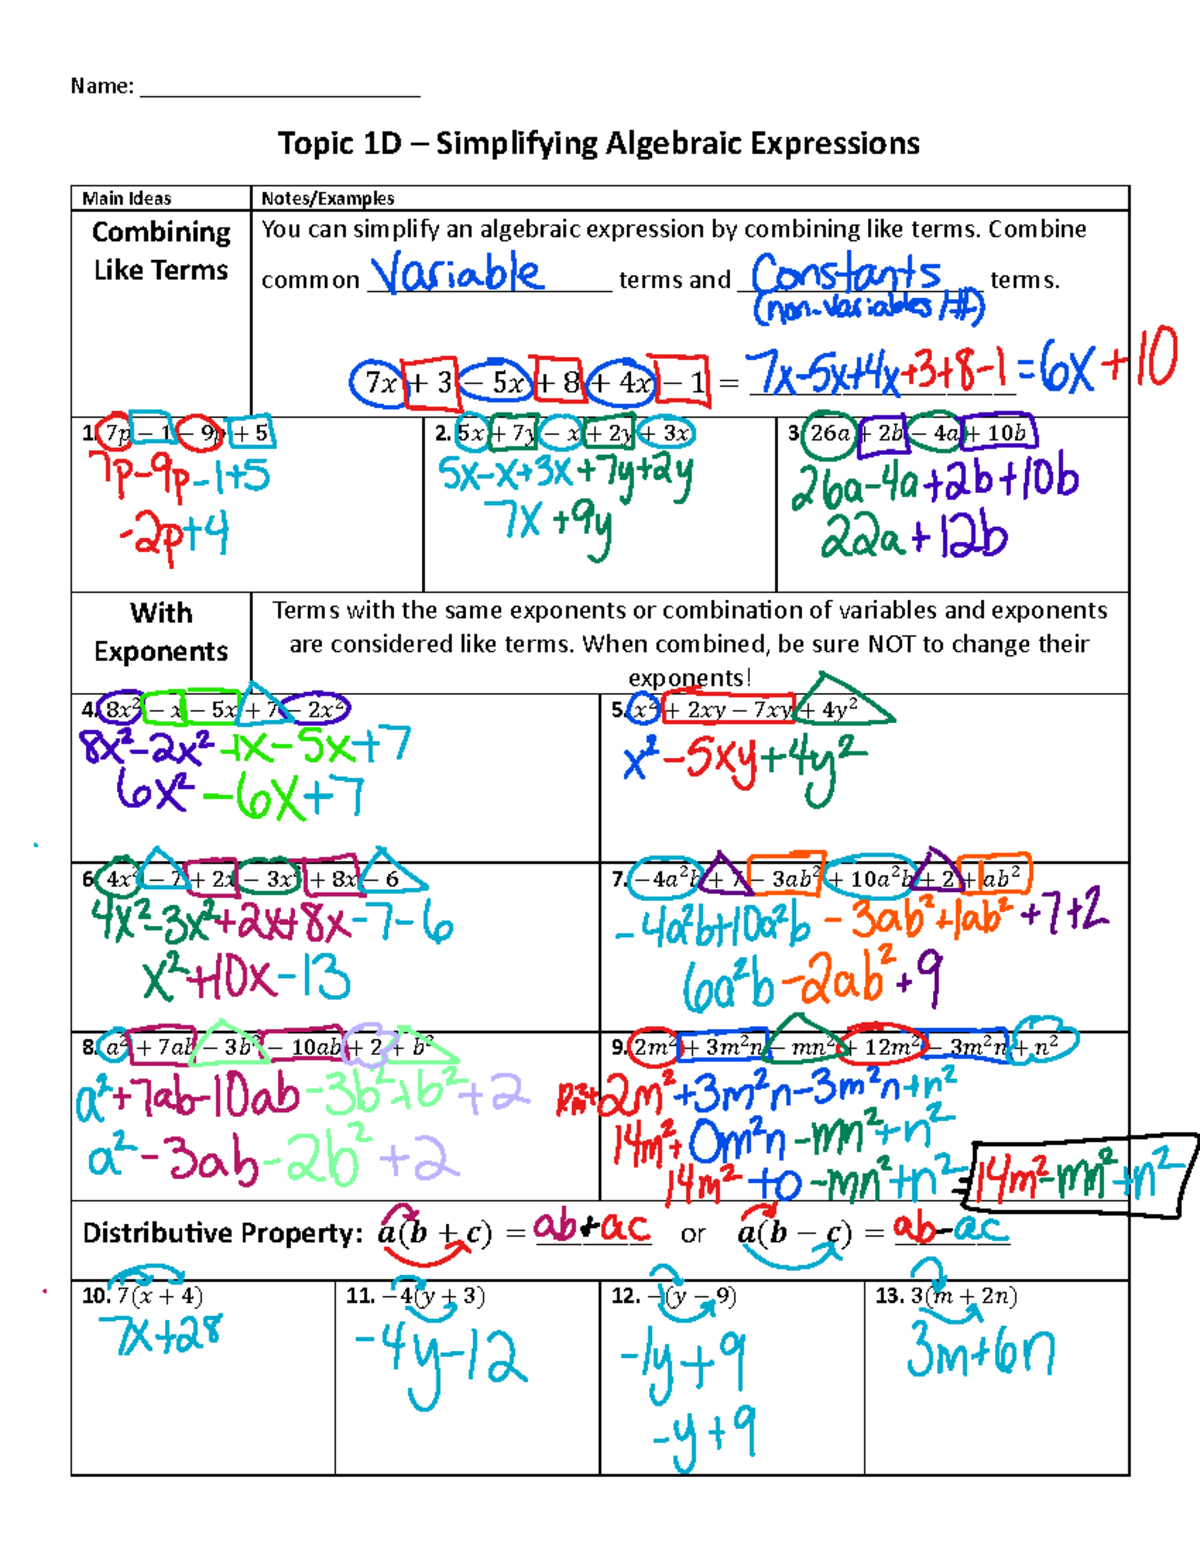 Name: ____________________
Topic 1D – Simplifying Algebraic Expressions
Main Ideas
Notes/Examples
Combining
Like Terms
You can simplify an algebraic expression by combining like terms. Combine
common Variable terms and Constants terms.
(non-variables/#)
7x + 3 − 5x + 8 + 4x − 1 = 7x-5x+4x+3+8-1 = 6x +10
1. 7p − 1 − 9p + 5
7p-9p-1+5
-2p+4
2. 5x + 7y − x + 2y + 3x
5x-x+3x+7y+2y
7x +9y
3. 26a + 2b − 4a + 10b
26a-4a+2b+10b
22a+12b
With
Exponents
Terms with the same exponents or combination of variables and exponents
are considered like terms. When combined, be sure NOT to change their
exponents!
4. 8x² − x − 5x + 7 − 2x²
8x²-2x²-1x-5x+7
6x²-6x+7
5. x² + 2xy − 7xy + 4y²
x²-5xy+4y²
6. 4x² − 7 + 2x − 3x² + 8x − 6
4x²-3x²+2x+8x-7-6
x²+10x-13
7. − 4a²b + 7 − 3ab² + 10a²b + 2 + ab²
-4a²b+10a²b -3ab²+1ab² +7+2
6a²b-2ab²+9
8. a² + 7ab − 3b² − 10ab + 2 + b²
a²+7ab-10ab-3b²+b²+2
a²-3ab-2b²+2
9. 2m² + 3m²n − mn² + 12m² − 3m²n + n²
12m²+2m²+3m²n-3m²n+n²
14m²+0m²n-mn²+n²
14m²+0-mn²+n² = 14m²-mn²+n²
Distributive Property: a(b + c) = ab+ac or a(b − c) = ab-ac
10. 7(x + 4)
7x+28
11. −4(y + 3)
-4y-12
12. −(y − 9)
-1y+9
-y+9
13. 3(m + 2n)
3m+6n